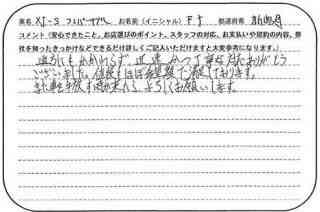 車名 XJ-S フルパーサブル お名前(イニシャル) F.す 都道府県 新潟県
コメント(安心できたこと、お店選びのポイント、スタッフの対応、お支払いや契約の内容、弊
社を知ったきっかけなどできるだけ詳しくご記入いただけますと大変参考になります。)
遠方にもかかわらず、迅速かつ丁寧な対応ありがとう
ございました。価格もほぼ希望額で満足しております。
また車を手放す時が来たら、よろしくお願いします。